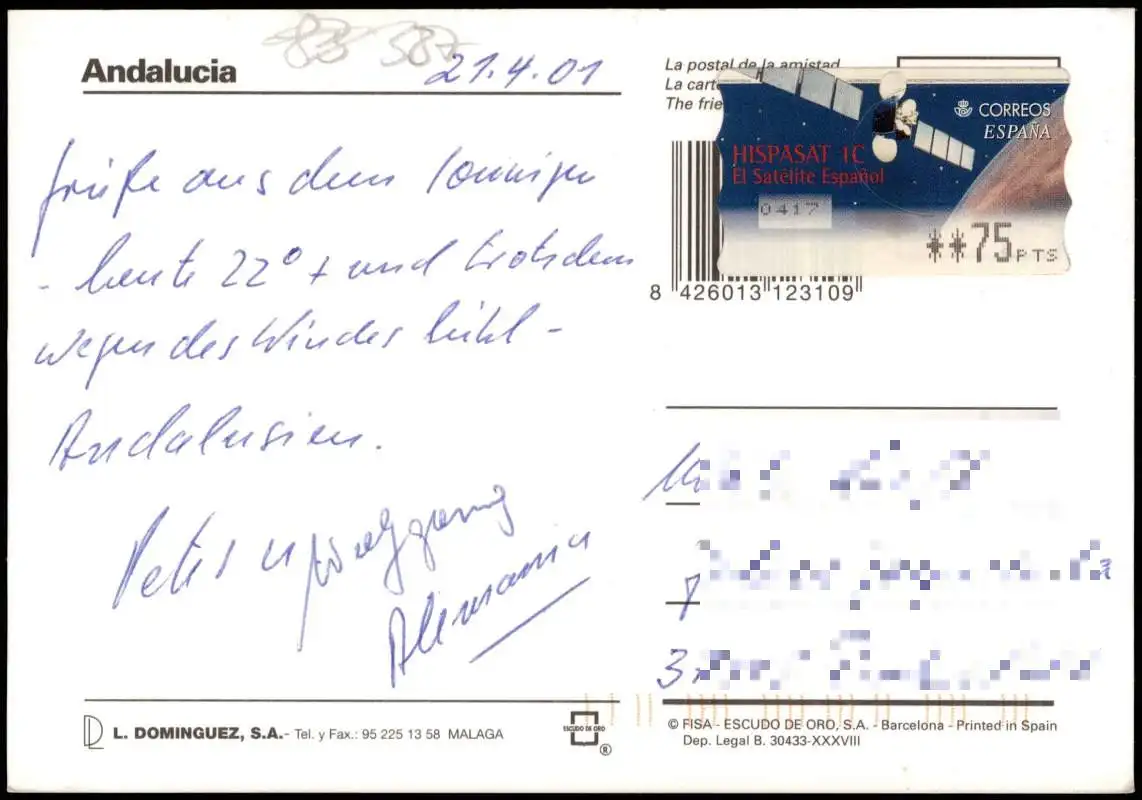 83 587
Andalucia
21.4.01
Grüße aus dem sonnigen
- heute 22° + und trotzdem
wegen des Windes kühl -
Andalusien.
Peter u Wolfgang
Alemania
La postal de la amistad
La cart
The frie
CORREOS
ESPAÑA
HISPASAT 1C
El Satélite Español
0417
**75 PTS
8 426013 123109
3
L. DOMINGUEZ, S.A.- Tel. y Fax.: 95 225 13 58 MALAGA
ESCUDO DE ORO
®
© FISA - ESCUDO DE ORO, S.A. - Barcelona - Printed in Spain
Dep. Legal B. 30433-XXXVIII